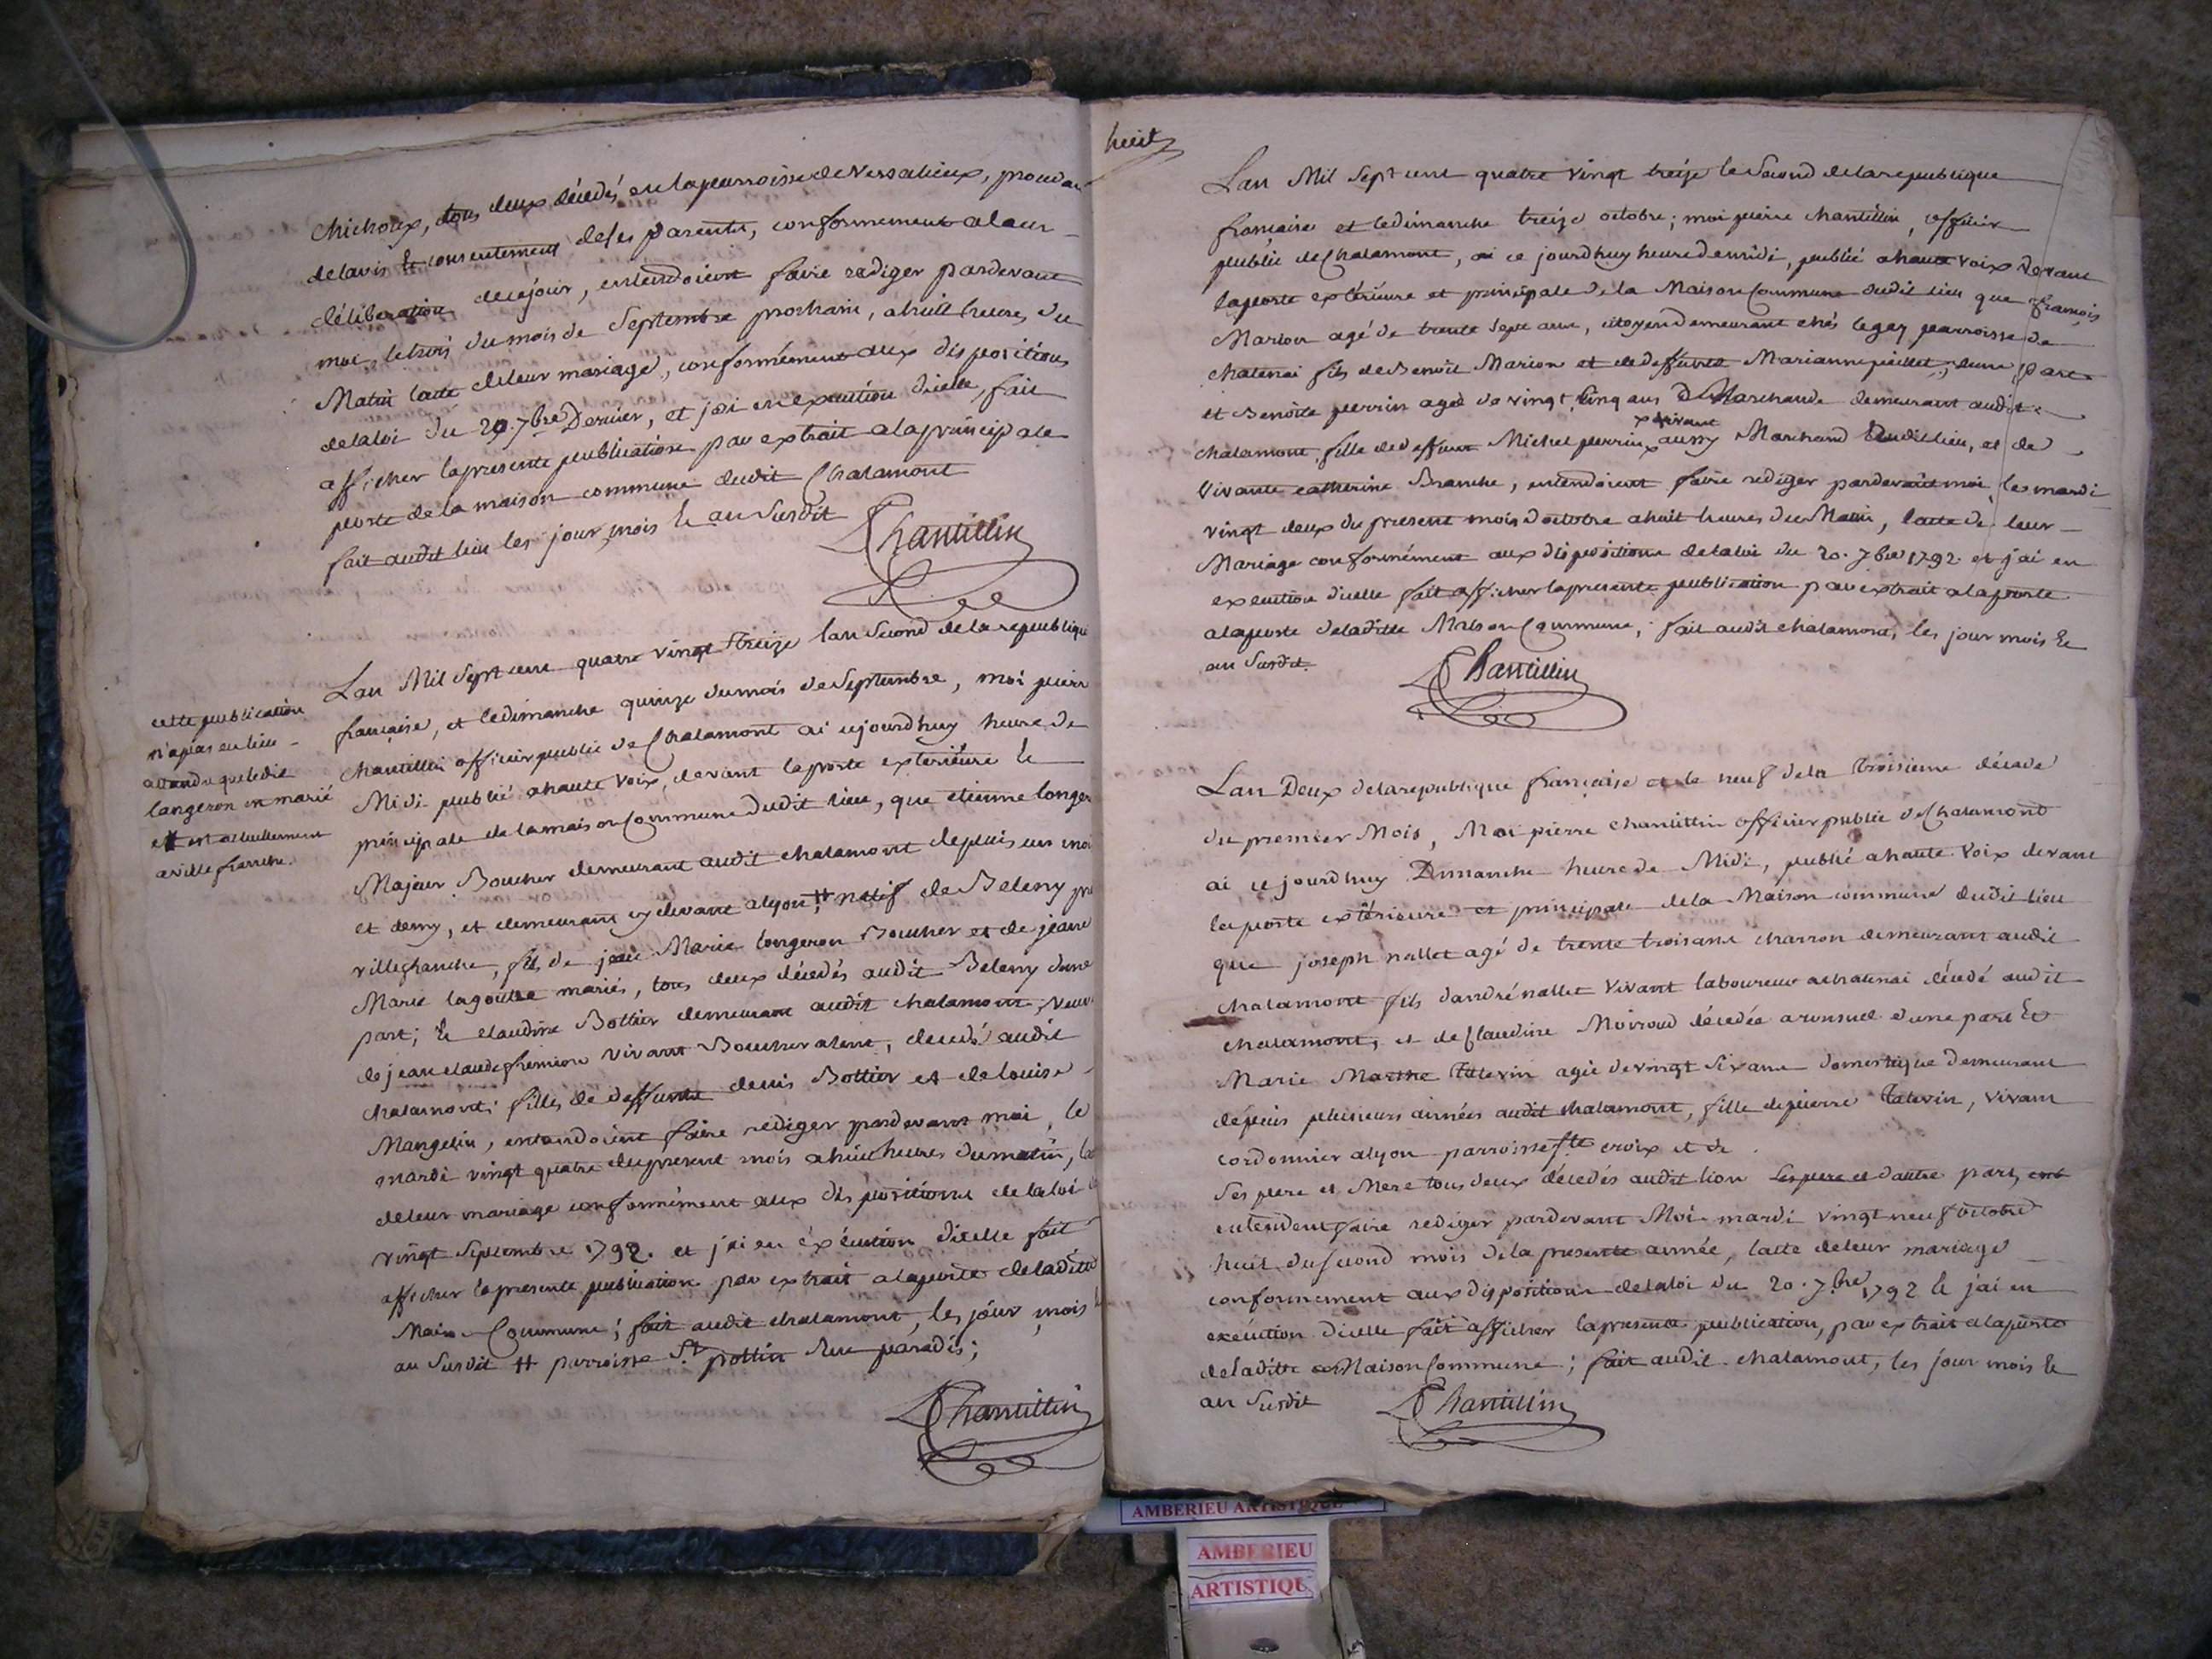 chichoux, tous deux décédés en la parroisse de Versalieux, proudan
delavis & consentement de ses parents, conformement alaur
déliberation decejour, entendoient faire rediger pardevant
moi, letrois du mois de Septembre prochain, ahuit heures du
Matin lacte deleur mariage, conformément aux dispositions
delaloi du 20. 7bre Dernier, et jai en execution dicelle, fait
afficher lapresente publication par extrait alaprincipale
porte de la maison commune dudit Chalamont
fait audit lieu les jour, mois & an Susdit
Chantillin
cette publication
n'apas eu lieu
attendu queledit
langeron en marié
et est actuellement
aville franche.
Lan Mil Sept cent quatre vingt treize lan Second de la republique
francaise, et ledimanche quinze dumois de Septembre, moi pierr
chantillin officier public de Chalamont ai cejourdhuy heure de
Midi publié ahaute voix, devant la porte exterieure &
principale de lamaison Commune dudit lieu, que etienne longer
Majeur Boucher demeurant audit chalamont depuis un moi
et demy, et demeurant cydevant alyon, # natif de Beleny pr
villefranche, fils de jean Marie longeron Boucher et de jeanne
Marie lagoutte mariés, tous deux décedés audit Beleny dune
part; & claudine Bottier demeurant audit chalamont, veuve
de jean claude fremion vivant Boucher alent, decedé audit
chalamont; fille de deffunts denis Bottier et de louise
Mangelin, entandoient faire rediger pardevant moi, le
mardi vingt quatre dupresent mois ahuit heures dumatin, la
deleur mariage conformément aux dispositions de laloi d
vingt Septembre 1792. et jai en éxécution dicelle fait
afficher lapresente publication par extrait alaporte deladitte
Maison Commune; fait audit chalamont, les jour, mois &
an Susdit # parroisse St. pottin rue paradis;
Chantillin
huit
Lan Mil Sept cent quatre vingt treize le Second delarepublique
française et ledimanche treize octobre; moi pierre chantillin, officier
public de Chalamont, ai ce jourdhuy heure demidi, publié ahaute voix devant
laporte extérieure et principale de la Maison Commune dudit lieu que françois
Marion agé de trente sept ans, citoyen demeurant chés legay parroisse de
chatenai fils de Benoit Marion et de deffunte Marianne peillet, dune part
et Benoite perrin agée de vingt cinq ans Marchande demeurant audit
x vivant
chalamont, fille de deffunt Michel perrin x aussy Marchand dudit lieu, et de
Vivante catherine Branche, entendoient faire rediger pardevant moi, les mardi
vingt deux du present mois doctobre ahuit heures du Matin, lacte de leur
Mariage conformément aux dispositions delaloi du 20. 7bre 1792. et j'ai en
execution dicelle fait afficher lapresente publication par extrait alaporte
alaporte deladitte Maison Commune; fait audit chalamont, les jour mois &
an Susdit.
Chantillin
Lan Deux delarepublique française et le neuf dela troisieme décade
du premier Mois, Moi pierre chantillin officier public de Chalamond
ai ce jourdhuy Dimanche heure de Midi, publié ahaute voix devant
la porte extérieure et principale dela Maison commune dudit lieu
que joseph nallet agé de trente troisans charron demeurant audit
chalamont fils dandré nallet vivant laboureur achatenai décedé audit
chalamont, et de Claudine Moiroud décedée aronsuel dune part &
Marie Marthe Talevin agée devingt Six ans domestique demeurant
depuis plusieurs années audit chalamont, fille depierre Talevin, vivant
cordonnier alyon parroisse Ste croix et de
Ses pere et Mere tous deux décedés audit lion Ses pere et dautre part, ont
entendent faire rediger pardevant Moi mardi vingt neuf octobre
huit du second mois dela presente année, lacte deleur mariage
conformement aux dispositions delaloi du 20. 7bre 1792 & j'ai en
exécution dicelle fait afficher lapresente publication, par extrait alaporte
deladitte Maison Commune; fait audit chalamont, les jour mois &
an Susdit
Chantillin
AMBERIEU ARTISTIQUE
AMBERIEU
ARTISTIQU